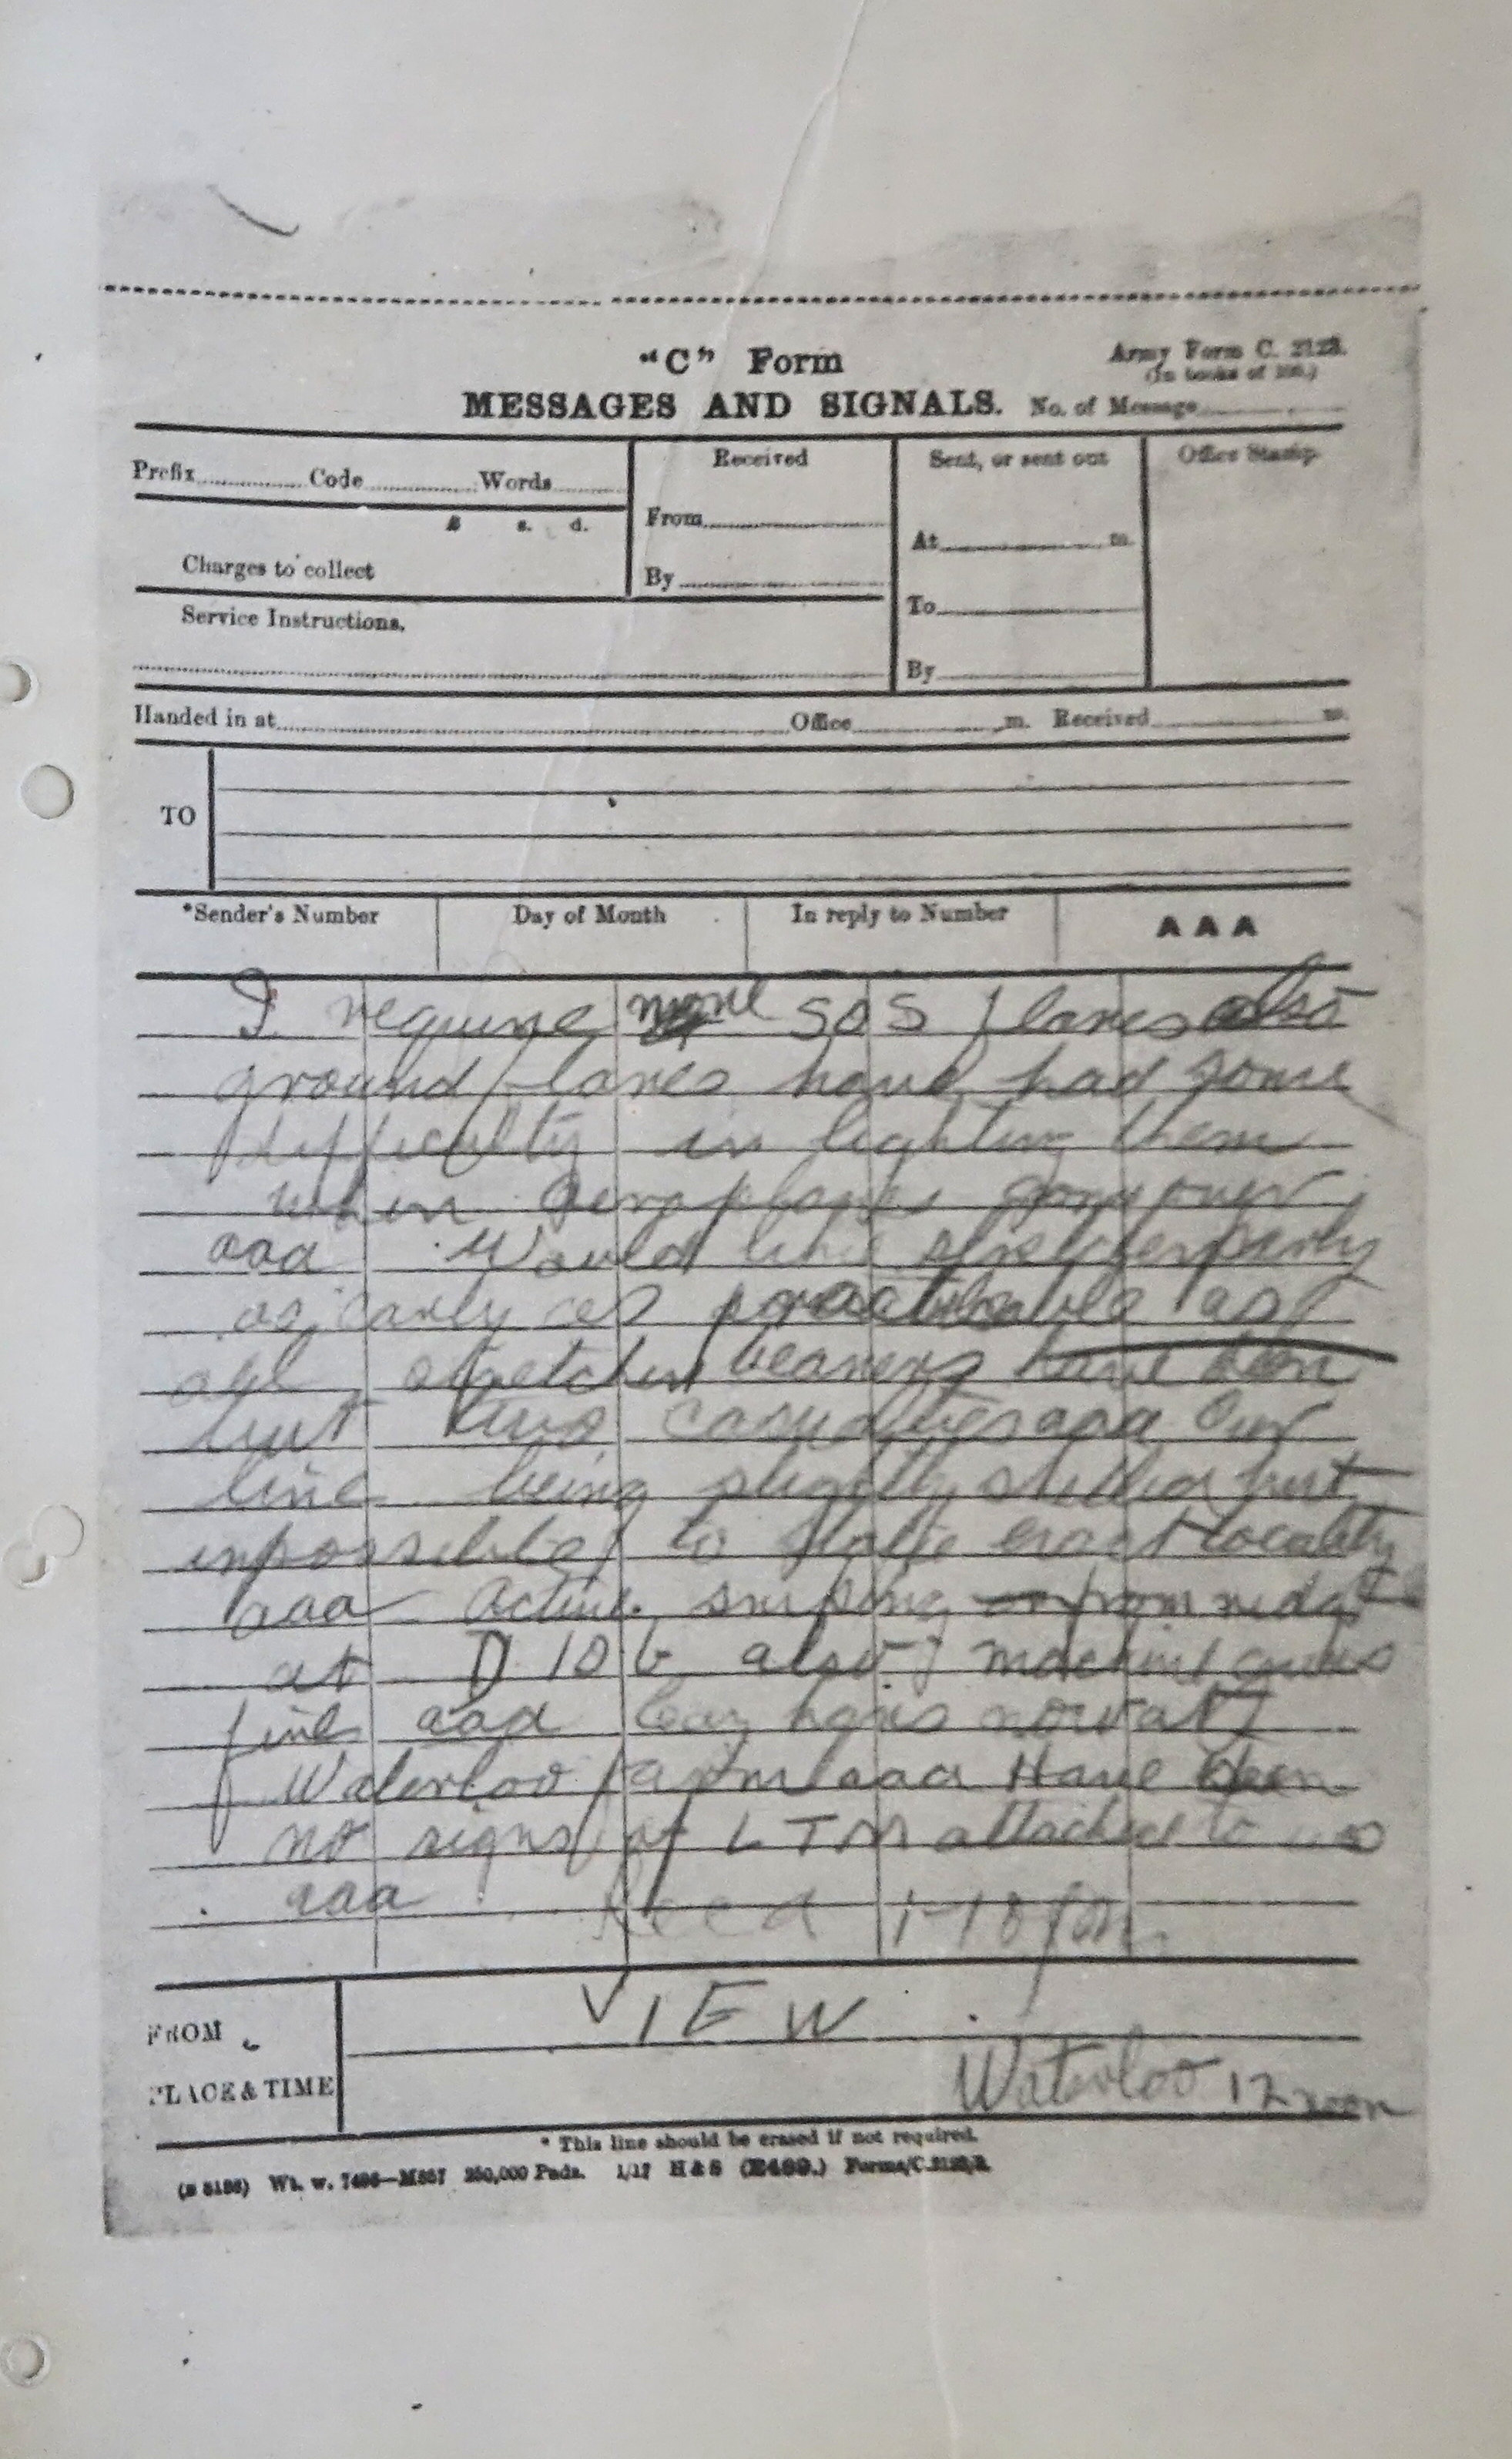 "C" Form
Army Form C. 2123.
(In books of 100.)
MESSAGES AND SIGNALS. No. of Message
Prefix Code Words
£ s. d.
Charges to collect
Service Instructions.
Received
From
By
Sent, or sent out
At m.
To
By
Office Stamp
Handed in at Office m. Received m.
TO
*Sender's Number Day of Month In reply to Number AAA
I require more SOS flares also
ground flares have had some
difficulty in lighting them
when aeroplanes gony over
aaa Would like stretcher party
as early as practicable as
all stretcher bearers have been
hurt casualties aaa Our
line being slightly shelled but
impossible to state exact locality
aaa Active sniping from
at D 10 b also machine guns
fire aaa now at
Waterloo farm aaa Have seen
no signs of LTM attached to
aaa
Recd 1-18 pm
FROM VIEW
PLACE & TIME Waterloo 12 noon
* This line should be erased if not required.
Wt. w. 7496—M857 250,000 Pads. 1/17 H & S Forms/C.2123/